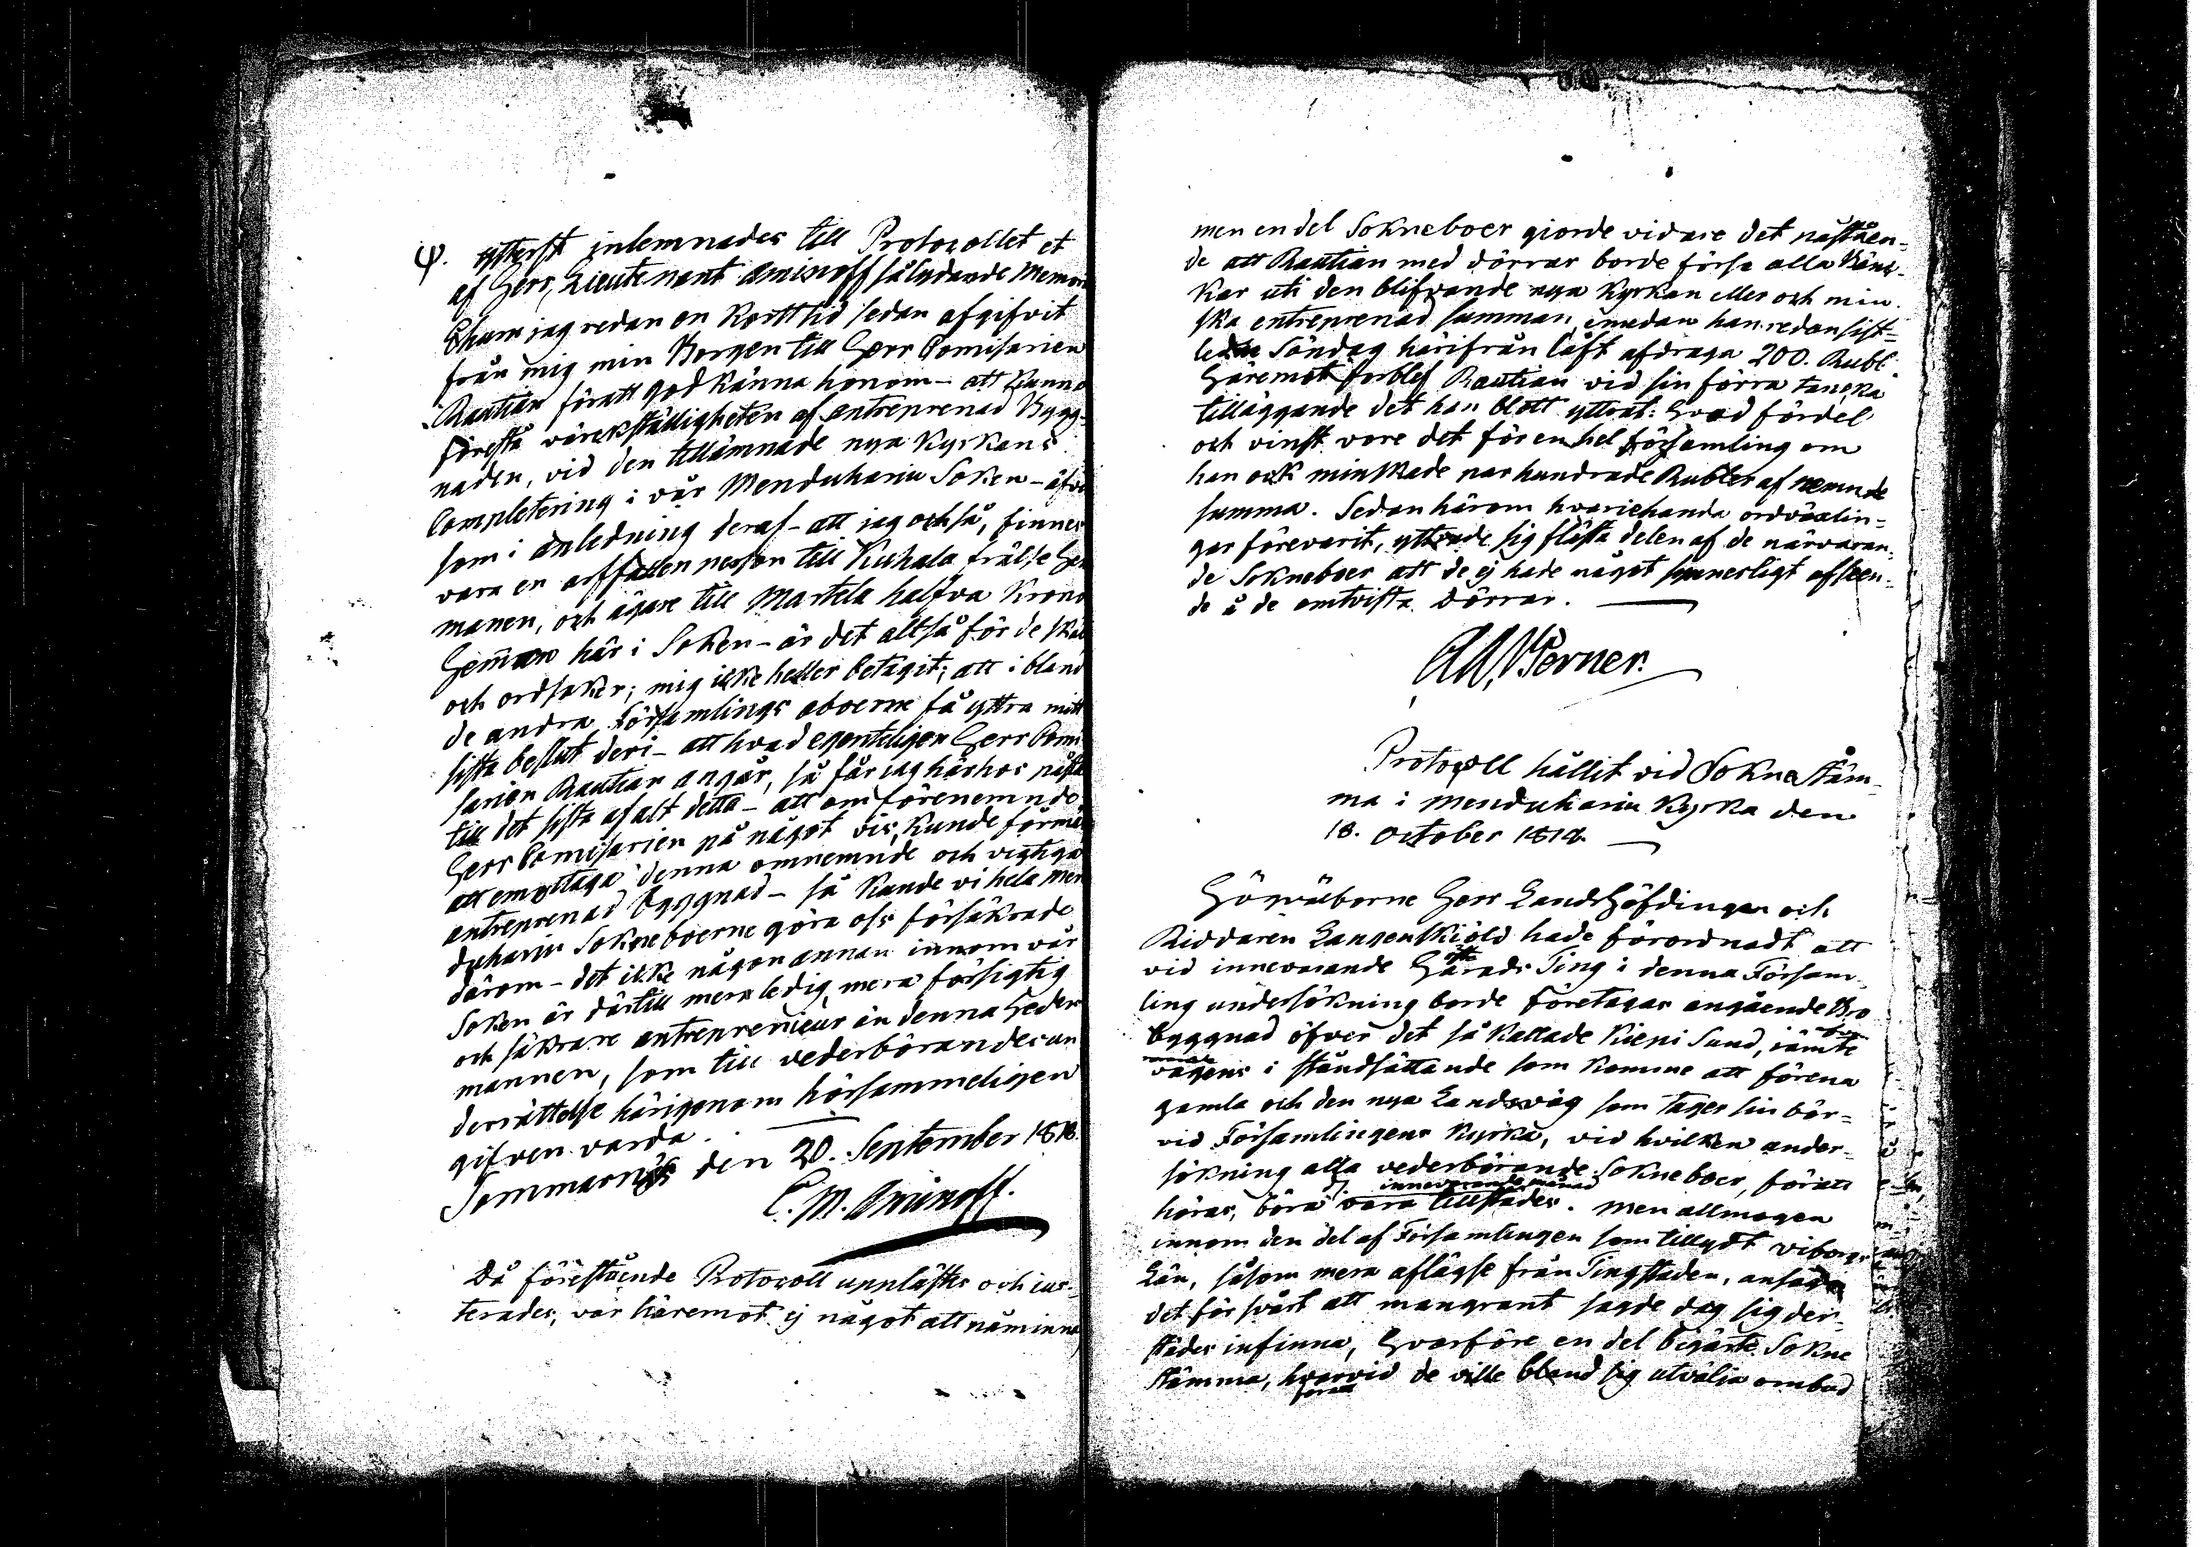 φ. ytterst inlemnades till Protocollet et
af Herr Lieutenant Aminoff så lydande Memor
Ehuru jag redan en kort tid sedan afgifvit
från mig min Borgen till Herr Comisarien
Rautian föratt godkänna honom – att kunna
förestå värckställigheten af entreprenad Bygg-
naden, vid den tillämnade nya Kyrkans
Completering i vår Menduhariu Soken – äfve
som i anledning deraf – att jag också, finner
vara en arffallen person till Kuhala frälse He
manen, och ägare till Martela halfva Krono
Hemman här i Soken – är det altså för de skäl
och ordsaker; mig icke heller betagit; att ibland
de andra Församlings aboerne få yttra mitt
sista beslut deri – att hvad egenteligen Herr Comi
sarien Rautian angår, så får jag härhos påstå
till det sista af alt detta – att om förenemnde
Herr Comisarien på något vis, kunde förmås
att emottaga denna omnemnde och vigtiga
entreprenad Byggnad – så kunde vi hela Men
duhariu Sokneboerne göra oss försäkrade
därom – det icke någon annan innom vår
Soken är därtill mera ledig, mera försigtig
och säkrare entreprenieur än denna Heders
mannen, som till vederbörandes un
derrättelse härigenom hörsammeligen
gifven varda.
Sommarnäs den 20. September 1818.
C. M. Aminoff.
Då förestående Protocoll upplästes och jus-
terades, var häremot ej något att påminna
men en del Sokneboer giorde vidare det påståen-
de att Rautian med dörrar borde förse alla Bänc-
kar uti den blifvande nya Kyrkan eller ock min-
ska entreprenad summan, emedan han redan sist-
leden Söndag härifrån låft afdraga 200. Rubl.
Häremot förblef Rautian vid sin förra tancka
tilläggande det han blott yttrat: Hvad fördel
och vinst vore det för en hel församling om
han ock minskade par hundrade Rubler af nemnde
summa. Sedan härom hvariehanda ordväxlin-
gar förevarit, yttrade sig flästa delen af de närvaran-
de Sokneboer att de ej hade något synnerligt afseen-
de å de omtvista dörrar.
Ad. Wörner.
Protocoll hållit vid Sokne stäm-
ma i Menduhariu Kyrka den
18. October 1818.
Högvälborne Herr Landshöfdingen och
Riddaren Langenskiöld hade förordnadt att
vid innevarande Härads Ting i denna Försam-
ling undersökning borde företagas angående Bro
byggnad öfver det så kallade Kieni Sund, jämte
vägens i ståndsättande som komme att förena
gamla och den nya Landsväg som tager sin bör-
vid Församlingens Kyrka, vid hvilken under-
sökning alla vederbörande Sokneboer, föratt
innevarande månad
höras, böra vara tillstädes. Men allmogen
innom den del af Församlingen som tillydt Viborgs
Län, såsom mera aflägse från Tingstaden, ansåg
det för svårt att mangrant sagde dag sig der-
städes infinna, Hvarföre en del begärte Sokne
stämma, hvarvid de ville bland sig utvälja ombud
föratt